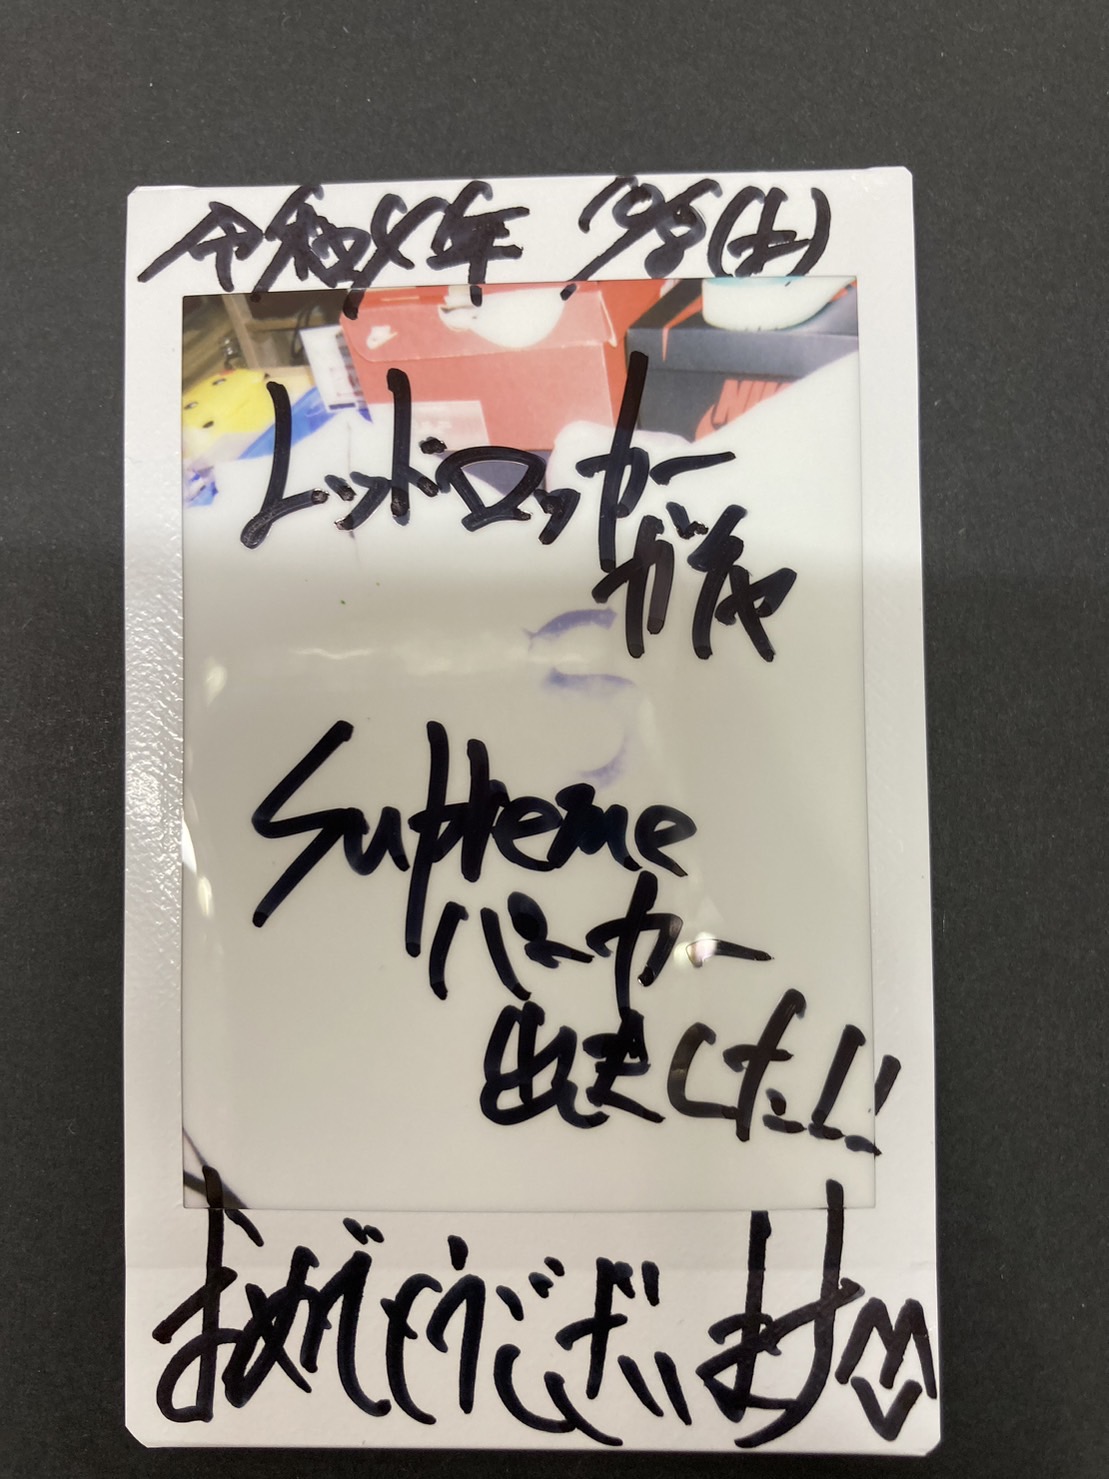 令和4年 10/8(土)
NIKE
レッドロッカー
ガチャ
Supreme
パーカー
出ました!!
おめでとうございます